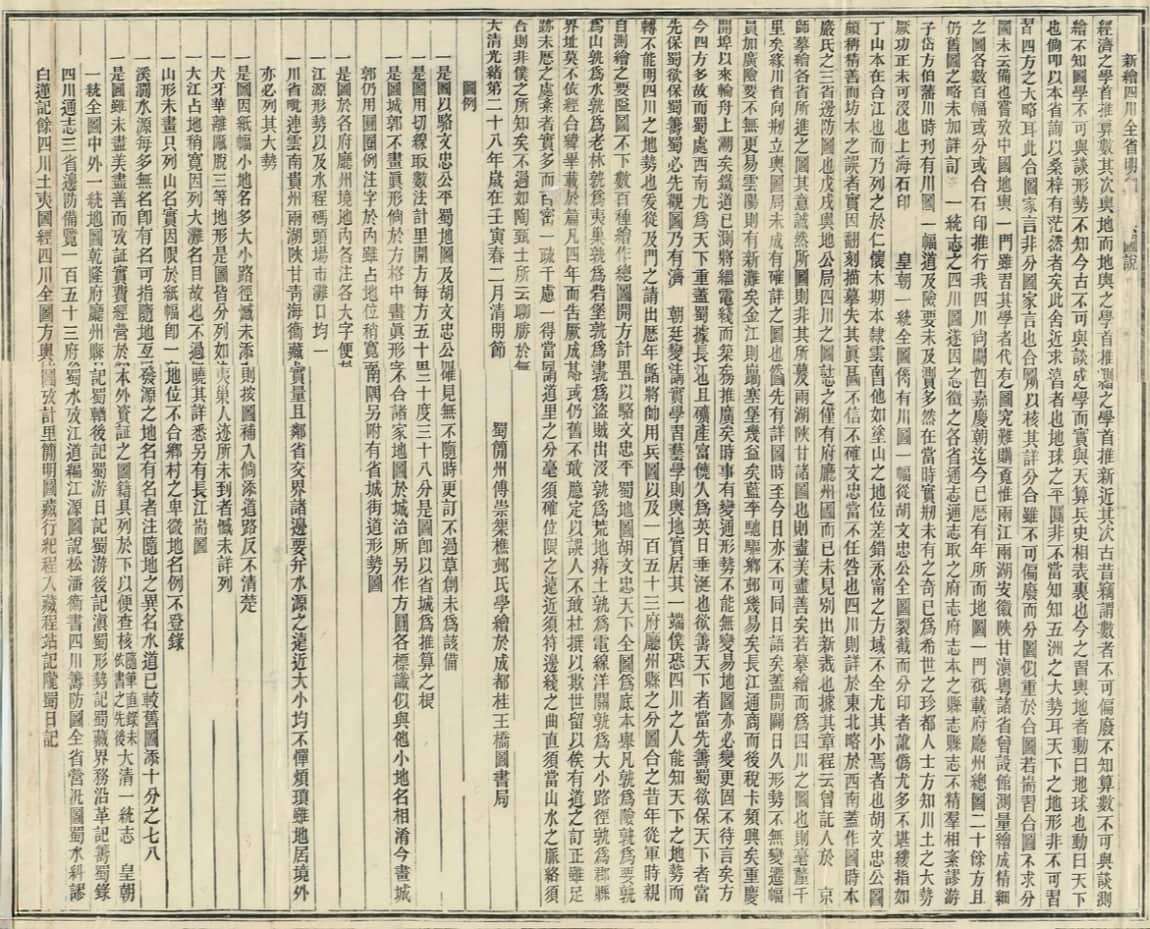 新繪四川全省明 圖說
經濟之學首推算數其次輿地而地輿之學首推測繪之學首推新近其次古昔竊謂數者不可偏廢不知算數不可與談測
繪不知圖學不可與談形勢不知今古不可與談成學而實與天算兵史相表裏也今之習輿地者動曰地球也動曰天下
也倘叩以本省詢以桑梓有茫然者矣此舍近求遠者也地球之平圓非不當知知五洲之大勢耳天下之地形非不可習
習四方之大略耳此合圖家言非分圖家言也合圖所以核其詳分合雖不可偏廢而分圖似重於合圖若耑習合圖不求分
圖未云備也嘗攷中國地輿一門雖習其學者代有乞圖究難購覓惟兩江兩湖安徽陝甘滇粵諸省曾設館測量繪成精細
之圖各數百幅或分或合石印推行我四川尙闕如自嘉慶朝迄今已歷有年所而地圖一門祇載府廳州總圖二十餘方且
仍舊圖之略未加詳訂 一統志之四川圖遂因之志徵之各省通志通志取之府志府志本之縣志縣志不精羣相案謬游
子岱方伯藩川時刊有川圖一幅道及險要未及測多然在當時實刱未有之奇已爲希世之珍都人士方知川土之大勢
厥功正未可沒也上海石印 皇朝一統全圖僞有川圖一幅從胡文忠公全圖裂截而分印者訛僞尤多不堪縷指如
丁山本在合江也而乃列之於仁懷木期本隸雲南他如塗山之地位差錯永甯之方域不全尤其小焉者也胡文忠公圖
頗稱精善而坊本之誤者實因翻刻描摹失其眞甚不信不確文忠當不任咎也四川則詳於東北略於西南蓋作圖時本
嚴氏之三省邊防圖也戊戌輿地公局四川之圖誌之僅有府廳州圖而已未見別出新裁也據其章程云曾託人於 京
師摹繪各省所進之圖其意誠然所圖則非其所蔓及兩湖陝甘諸圖也則盡美盡善矣若摹繪而爲四川之圖也則毫釐千
里矣緣川省向刱立輿圖局未成有確詳之圖也然圖先有詳圖時至今日亦不可同日語矣蓋開闢日久形勢不無變遷幅
員加廣險要不無更易雲陽則有新灘矣金江則崩塌塞堡幾益矣籃車馳驅鄉郵幾易矣長江通商而後稅卡頻興矣重慶
開埠以來輪舟上溯矣鐵道已測將繼電綫而築矣務推廣矣時事有變通形勢不能無變易地圖亦必變更固不待言矣方
今四方多故而蜀處西南尤爲天下重蓋蜀據長江也且礦產富饒人爲英日垂涎也欲善天下者當先善蜀欲保天下者當
先保蜀欲保蜀籌蜀必先觀圖乃有濟 朝廷變法講實學習藝學則輿地實居其一端僕恐四川之人能知天下之地勢而
轉不能明四川之地勢也爰從及門之請出歷年所諮將帥用兵圖以及一百五十三府廳州縣之分圖合之昔年從軍時親
自測繪之要隘圖不下數百種繪作總圖開方計里以駱文忠平蜀地圖胡文忠天下全圖爲底本舉凡孰爲險孰爲要孰
爲山孰爲水孰爲老林孰爲夷巢孰爲砦堡孰爲津孰爲盜賊出沒孰爲荒地瘠土孰爲電線洋關孰爲大小路徑孰爲郡縣
界址莫不依經合緯畢載於篇凡四年而告厥成略或仍舊不敢臆定以誤人不敢杜撰以欺世留以俟有道之訂正雖足
跡未歷之處案者實多而一百密一疏千慮一得當歸道里之分毫須確位限之遠近須符邊綫之曲直須當山水之脈絡須
合則非僕之所知矣不過如陶甄士所云聊勝於無
大淸光緒第二十八年歲在壬寅春二月清明節 蜀簡州傅崇榘樵邨氏學繪於成都桂王橋圖書局
圖例
一是圖以駱文忠公平蜀地圖及胡文忠公確見無不隨時更訂不過草創未爲該備
一是圖用切線取數法計里開方每方五十里三十度三十八分是圖卽以省城爲推算之根
一是圖城郭不畫眞形倘於方格中畫眞形字不合諸家地圖於城治所另作方圓各標識似與他小地名相淆今畫城
郭仍用圖圈例注字於內雖占地位稍寬南隅另附有省城街道形勢圖
一是圖於各府廳州境地內各注各大字便
一江源形勢以及水程碼頭場市灘口均一
一川省毗連雲南貴州兩湖陝甘靑海衞藏實量且鄰省交界諸邊要分水源之遠近大小均不憚煩瑣雖地居境外
亦必列其大勢
一是圖因紙幅小地名多大小路徑憾未添則按圖補入倘添道路反不清楚
一犬牙華離厰脫三等地形是圖皆分列如夷巢人迹所未到者憾未詳列
一大江占地稍寬因列大灘名目故也不過一曉其詳悉另有長江耑圖
一山形未畫只列山名實因限於紙幅卽一地位不合鄉村之卑微地名例不登錄
一溪澗水源每多無名卽有名可指隨地互發源之地名有名者注隨地之異名水道已較舊圖添十分之七八
一是圖雖未盡美盡善而攷証實費經營於本外資証之圖籍具列於下以便查核隨筆直錄未依書之先後大清一統志 皇朝
一統全圖中外一統地圖乾隆府廳州縣記蜀輶後記蜀游日記蜀游後記滇蜀形勢記蜀藏界務沿革記籌蜀錄
四川通志三省邊防備覽一百五十三府蜀水攷江道編江源圖說松潘衞書四川籌防圖全省營汛圖蜀水科謬
白蓮記餘四川土夷國經四川全圖方輿圖攷計里簡明圖藏行紀程入藏程站記隴蜀日記